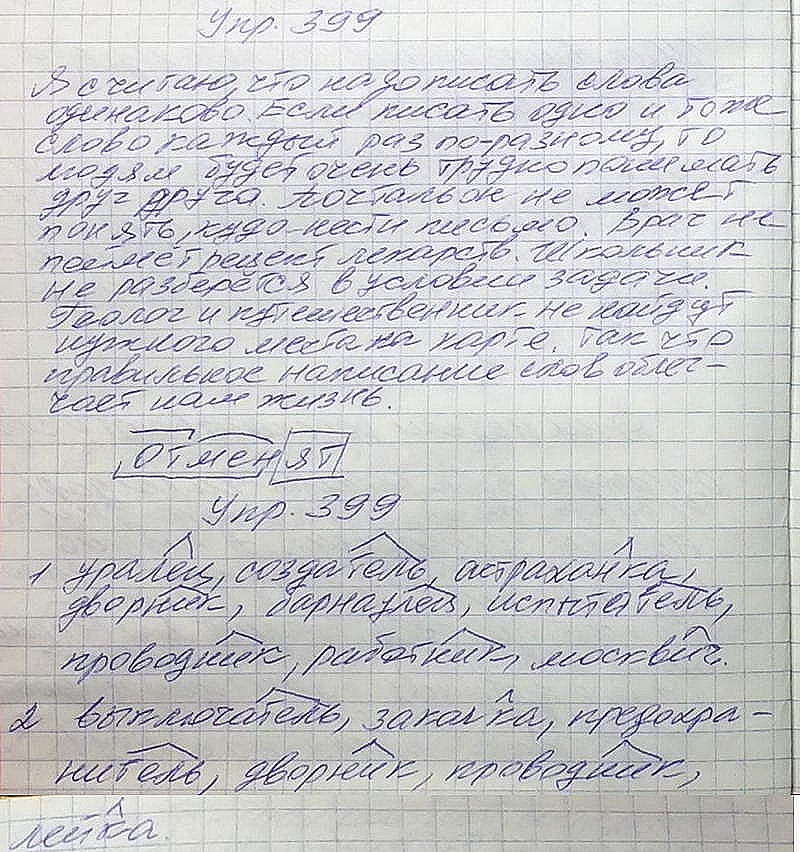 Упр. 399
Я считаю, что надо писать слова
одинаково. Если писать одно и тоже
слово каждый раз по-разному, то
людям будет очень трудно понимать
друг друга. Почтальон не может
понять, куда нести письмо. Врач не
поймет рецепт лекарств. Школьник
не разберётся в условии задачи.
Геолог и путешественник не найдут
нужного места на карте. Так что
правильное написание слов облег-
чает нам жизнь.
отменят
Упр. 399
1 уралец, создатель, астраханка,
дворник, барнаулец, испытатель,
проводник, работник, москвич.
2 выключатель, заколка, предохра-
нитель, дворник, проводник,
лейка.